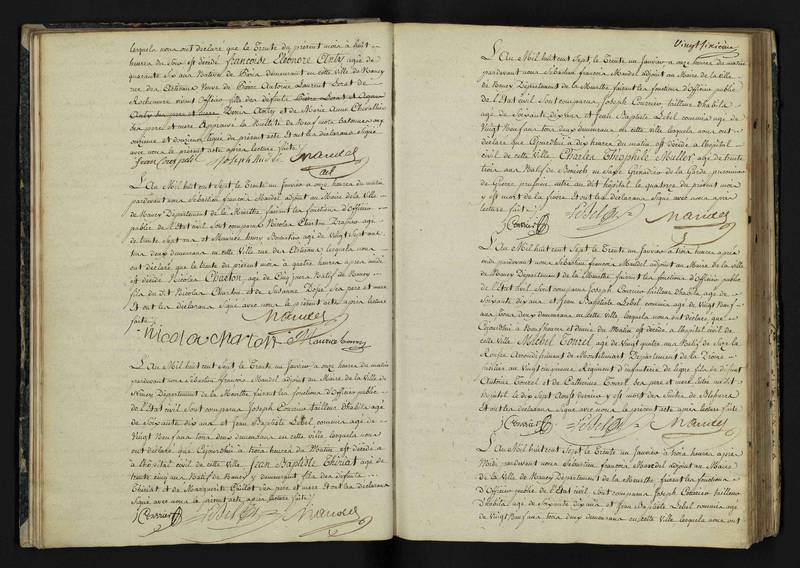 lesquels nous ont déclaré que le Trente du présent mois à huit
heures du Soir est décédé françoise Eléonore Anty agée de
quarante six ans Native de Paris demeurant en cette Ville de Nancy
rue des Artisans Veuve de Pierre Antoine Laurent Sorat de
Rochemure vivant Officier fille des défunts
Anty et de Marie Anne Chevallier
ses pere et mere Approuvé la Nullité de
onzieme et douzieme ligne du présent acte et ont les déclarans Signé
avec nous le présent acte après lecture faite
Joseph Mandel
L'An Mil huit cent Sept le Trente un Janvier à onze heures du matin
pardevant nous Sébastien françois Mandel adjoint au Maire de la Ville
de Nancy Département de la Meurthe faisant les fonctions d'Officier
public de l'Etat civil Sont comparus Nicolas Charton agé
de trente Sept ans et Maurice henry agé de Vingt Sept ans
tous deux demeurans en cette Ville rue des Artisans lesquels nous
ont déclaré que le trente du présent mois à quatre heures après midi
est décédé Nicolas Charton agé de Cinq jours Natif de Nancy
fils du dit Nicolas Charton et de Susanne Ses pere et mere
Et ont les déclarans Signé avec nous le présent acte après lecture
faite Mandel
Nicola charton Maurice henry
L'An Mil huit cent Sept le Trente un Janvier à onze heures du matin
pardevant nous Sébastien françois Mandel adjoint au Maire de la Ville de
Nancy Département de la Meurthe faisant les fonctions d'Officier public
de l'Etat civil Sont comparus Joseph tailleur d'habits agé
de Soixante dix ans et Jean Baptiste Lebel commis agé de
Vingt Neuf ans tous deux demeurans en cette ville lesquels nous
ont déclaré que Cejourdhui à trois heures du Matin est décédé à
l'hôpital civil de cette Ville Jean Baptiste Thiriat agé de
trente cinq ans Natif de Nancy y demeurant fils des défunts
Thiriat et de Marguerite Ses pere et mere Et ont les déclarans
Signé avec nous le présent acte après lecture faite
Lebel Mandel
Vingt Sixieme
L'An Mil huit cent Sept, le Trente un Janvier à onze heures du matin
pardevant nous Sébastien françois Mandel adjoint au Maire de la Ville
de Nancy Département de la Meurthe faisant les fonctions d'Officier public
de l'Etat civil Sont comparus Joseph tailleur d'habits
agé de Soixante dix ans et Jean Baptiste Lebel commis agé de
Vingt Neuf ans tous deux demeurans en cette ville lesquels nous ont
déclaré que Cejourdhui à dix heures du matin est décédé à l'hôpital
civil de cette Ville Charles Théophile Muller agé de trente
trois ans Natif de en Saxe Grénadier de la Garde, prisonnier
de Guerre prussien, entré au dit hôpital le quatorze du présent mois
y est mort de la fievre Et ont les déclarans Signé avec nous après
lecture faite
Lebel Mandel
L'An Mil huit cent Sept le Trente un Janvier à trois heures après
midi pardevant nous Sébastien françois Mandel adjoint au Maire de la Ville
de Nancy Département de la Meurthe, faisant les fonctions d'Officier public
de l'Etat civil Sont comparus Joseph tailleur d'habits agé de
Soixante dix ans et Jean Baptiste Lebel commis agé de Vingt Neuf
ans tous deux demeurans en cette ville, lesquels nous ont déclaré que
Cejourdhui à Neuf heures et demie du Matin est décédé à l'hôpital civil de
cette Ville Michel Tourel agé de Vingt quatre ans Natif de
Arrondissement de Montelimart Département de la Drome
fusilier au Vingt unieme Régiment d'infanterie de ligne fils de défunt
Antoine Tourel et de Catherine Tourel Ses pere et mere Entré au dit
hôpital le dix Sept Aoust dernier y est mort des Suites de Blessures
Et ont les déclarans Signé avec nous le présent acte après lecture faite
Lebel Mandel
L'An Mil huit cent Sept le Trente un Janvier à trois heures après
Midi, pardevant nous Sébastien françois Mandel adjoint au Maire
de la Ville de Nancy Département de la Meurthe, faisant les fonctions
d'Officier public de l'Etat civil, Sont comparus Joseph tailleur
d'habits agé de Soixante dix ans et Jean Baptiste Lebel commis agé
de Vingt Neuf ans, tous deux demeurans en cette Ville lesquels nous ont